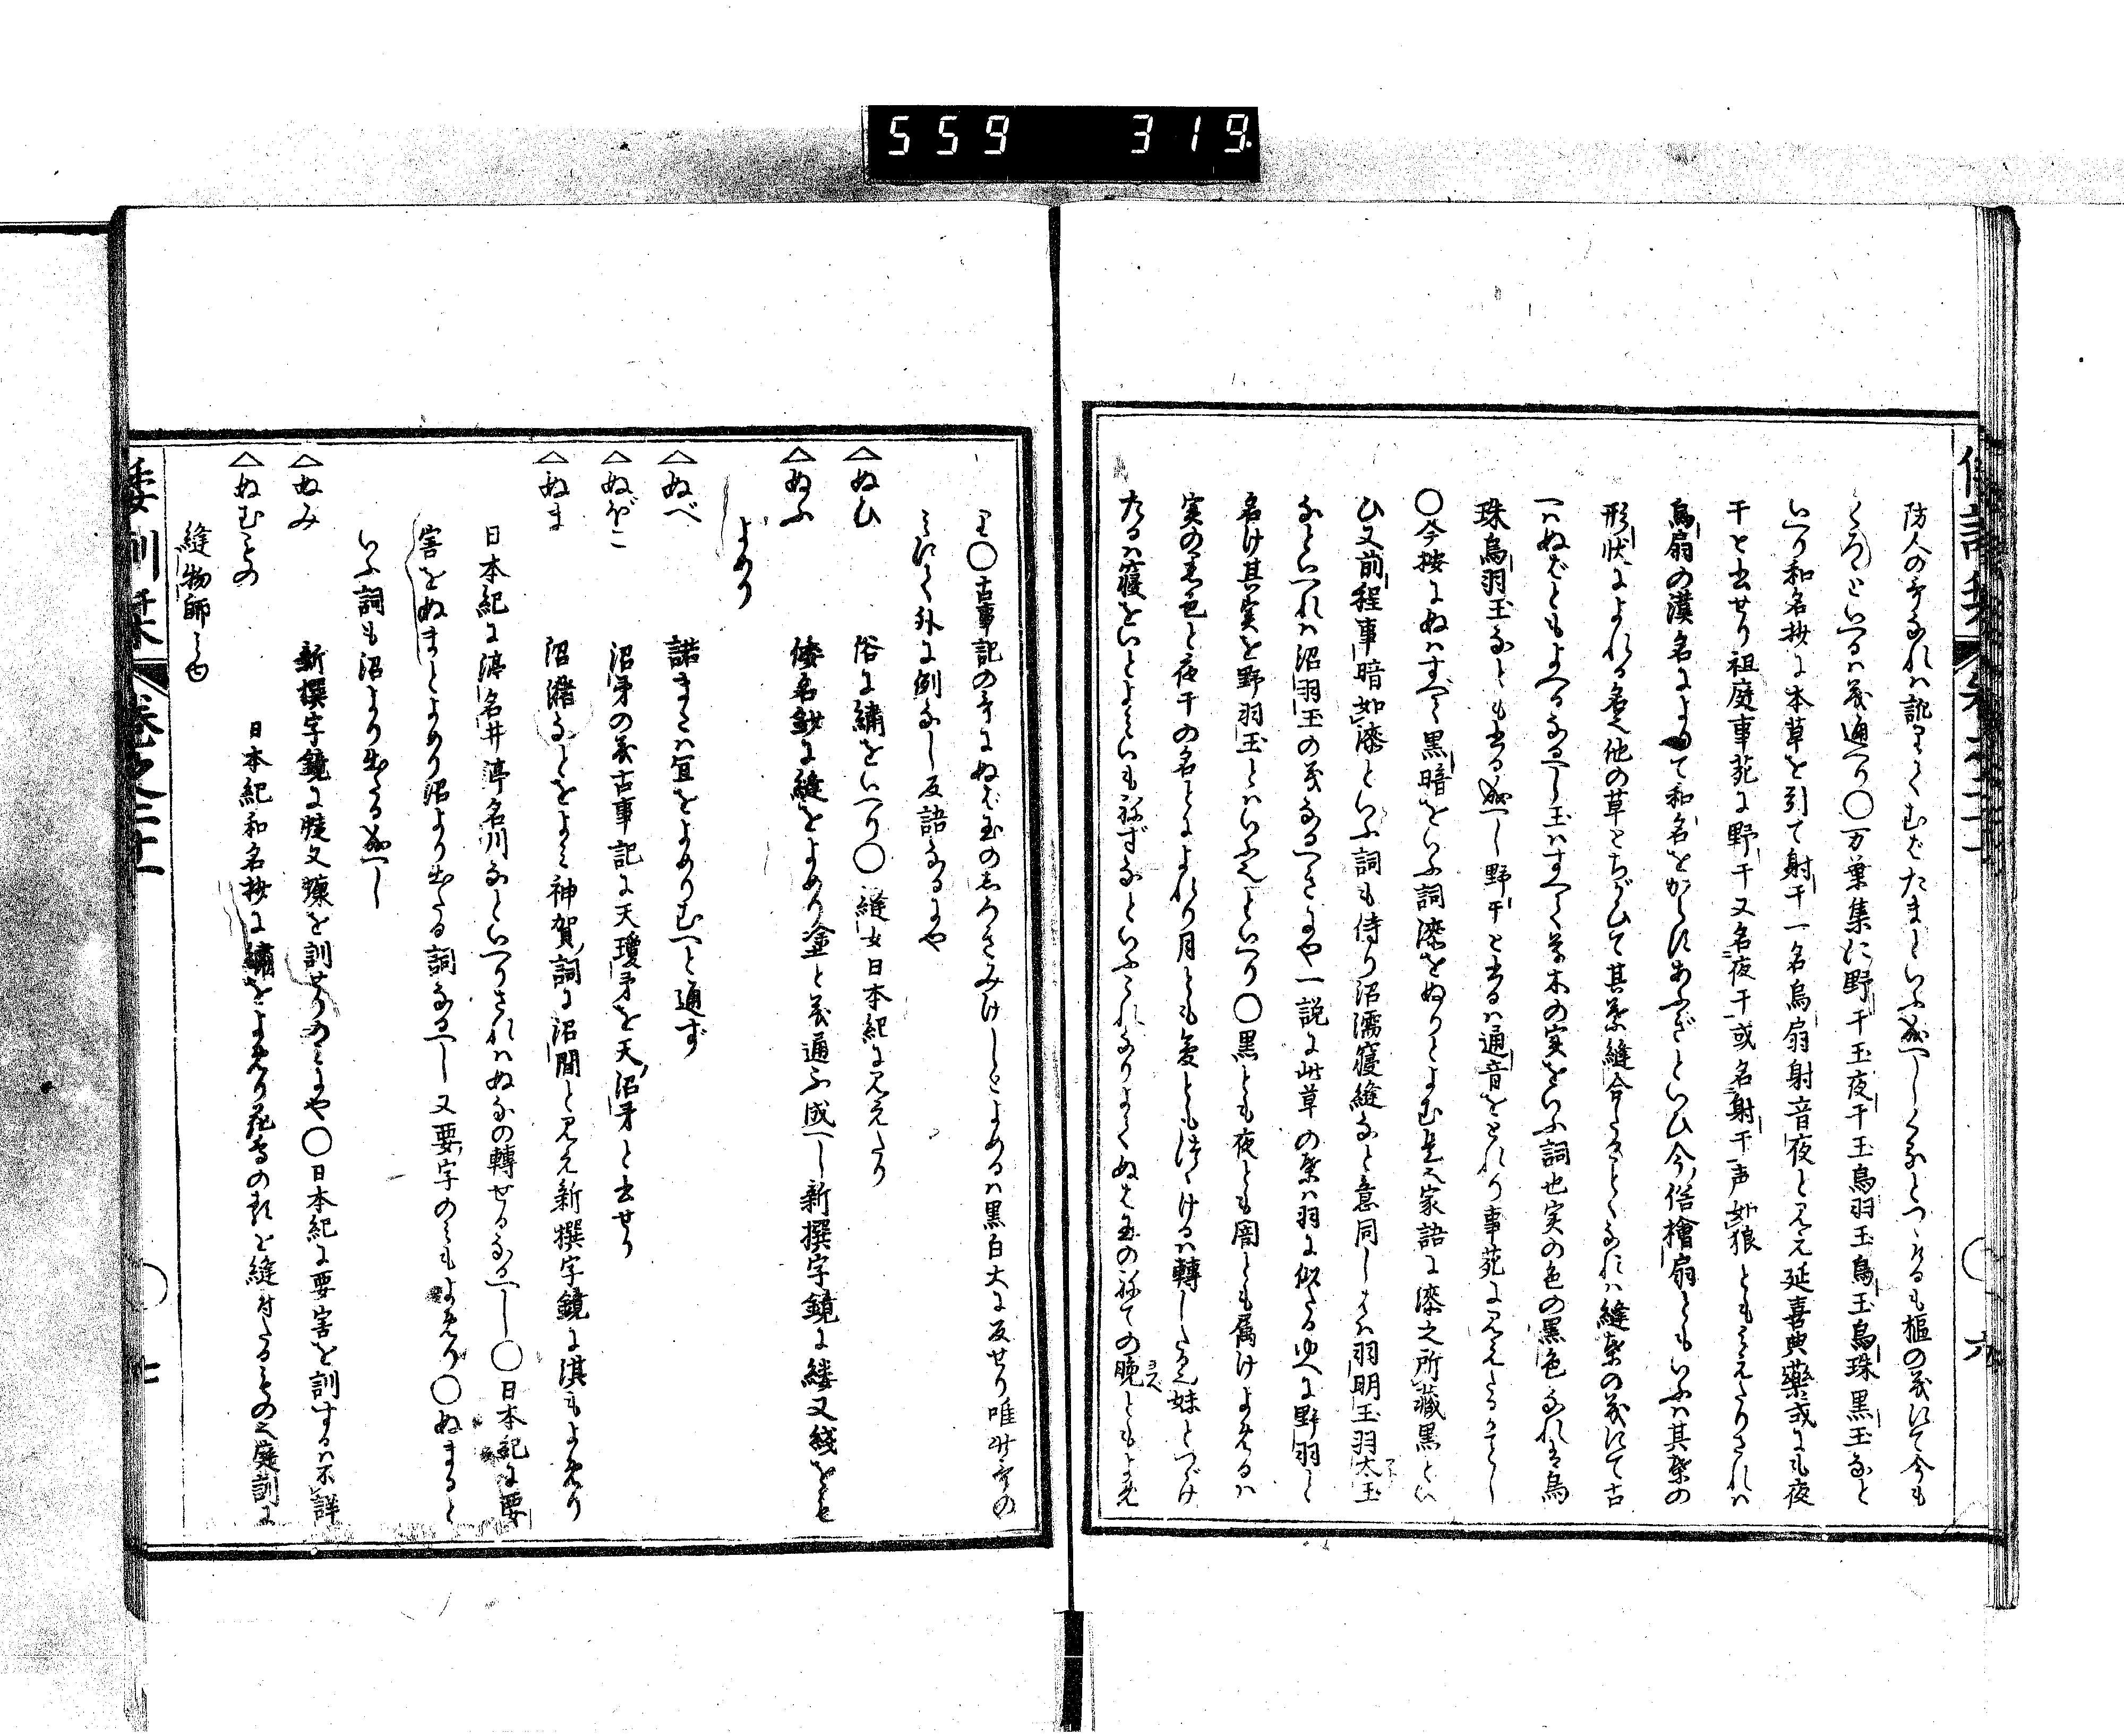 559 319
防人の哥なれは訛りてむばたまといふ成へしくなとつゝけるも樞の義にて今も
くろゝといへるは義通へり〇万葉集に野干玉夜干玉烏羽玉烏玉烏珠黒玉なと
いへり和名抄に本草を引て射干一名烏扇射音夜と見え延喜典藥或にも夜
干と書せり祖庭事苑に野干又名夜干或名射干声如狼ともみえたりされは
烏扇の漢名によりて和名をからすあふぎといひ今俗檜扇ともいふは其葉の
形状によれる名也他の草とちがひて其葉縫合たることくなれは縫葉の義にて古
へはぬばともよへるなるへし玉はすへて草木の実をいふ詞也実の色の黒色なれは烏
珠烏羽玉なとも書る成へし野干と書るは通音をとれり事苑に見えたるかことし
〇今按にぬはすべて黒暗をいふ詞漆をぬりとよむ是也家語に漆之所藏黒とい
ひ又前程事暗如漆といふ詞も侍り沼濡寝縫なと意同しよは羽明玉羽太玉
なといへれは沼羽玉の義なるへきにや一説に此草の葉は羽に似たるゆへに野羽と
名け其実を野羽玉とはいふ也といへり〇黒とも夜とも闇とも属けよめるは
実の黒色と夜干の名とによれり月とも夢ともつゝけるは轉したる也妹とつゞけ
たるは寝をいとよみいも祢ずなといふこれなりよくぬは玉の祢ての晩ヨヘともよめ
り〇古事記の哥にぬば玉のくろきみけしとよめるは黒白大に反せり唯此哥の
みにて外に例なし反語なるにや
△ぬひ 俗に繍をいへり〇縫女日本紀に見えたり
△ぬふ 倭名鈔に縫をよめり塗と義通ふ成へし新撰字鏡に縷又綫をも
よめり
△ぬべ 諾また宜をよめりむへと通ず
△ぬぼこ 沼矛の義古事記に天瓊矛を天沼矛と書せり
△ぬま 沼瀦なとをよみ神賀詞に沼間と見え新撰字鏡に淇もよめり
日本紀に渟名井渟名川なといへりされはぬなの轉せるなるへし〇日本紀に要
害をぬまとよめり沼より出たる詞なるへし又要字のみもよめり〇ぬまると
いふ詞も沼より出たる成へし
△ぬみ 新撰字鏡に又を訓せりのみにや〇日本紀に要害を訓するは不詳
△ぬむもの 日本紀和名抄に繍をよめり花鳥の形を縫付たるもの也庭訓に
縫物師みゆ
倭訓栞 卷之二十一 〇 七
倭訓栞 卷之二十一 〇 六